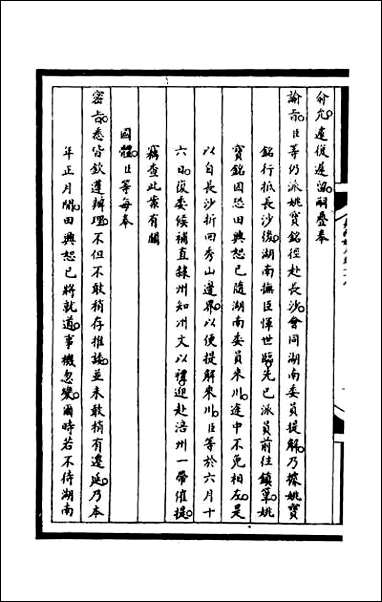 俞允遵復遵照嗣疊奉
諭旨臣等仍派姚寶銘徑赴長沙會同湖南委員提解乃據姚寶
銘行抵長沙後湖南撫臣惲世臨先已派員前往鎮筸姚
寶銘因恐田興恕已隨湖南委員來川途中不免相左是
以自長沙折回秀山邊界以便提解來川臣等於六月十
六日復委候補直隸州知州文以禮迎赴涪州一帶催提
竊查此案有關
國體臣等每奉
密旨悉皆欽遵辦理不但不敢稍存推諉並未敢稍有遷延乃本
年正月間田興恕已將就道事機忽變爾時若不待湖南